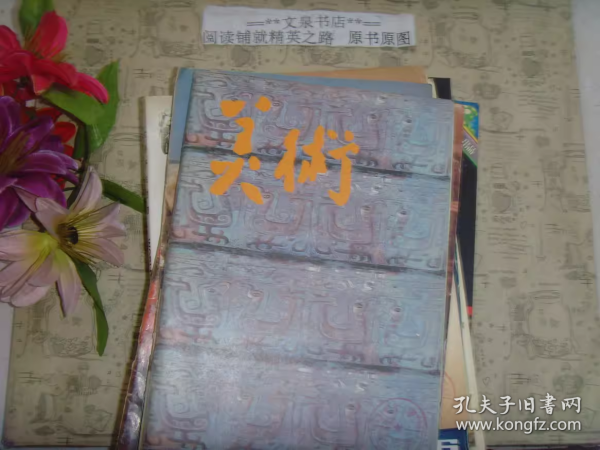 ==**文泉书店**==
阅读铺就精英之路 原书原图
美術
孔夫子旧书网
www.kongfz.com